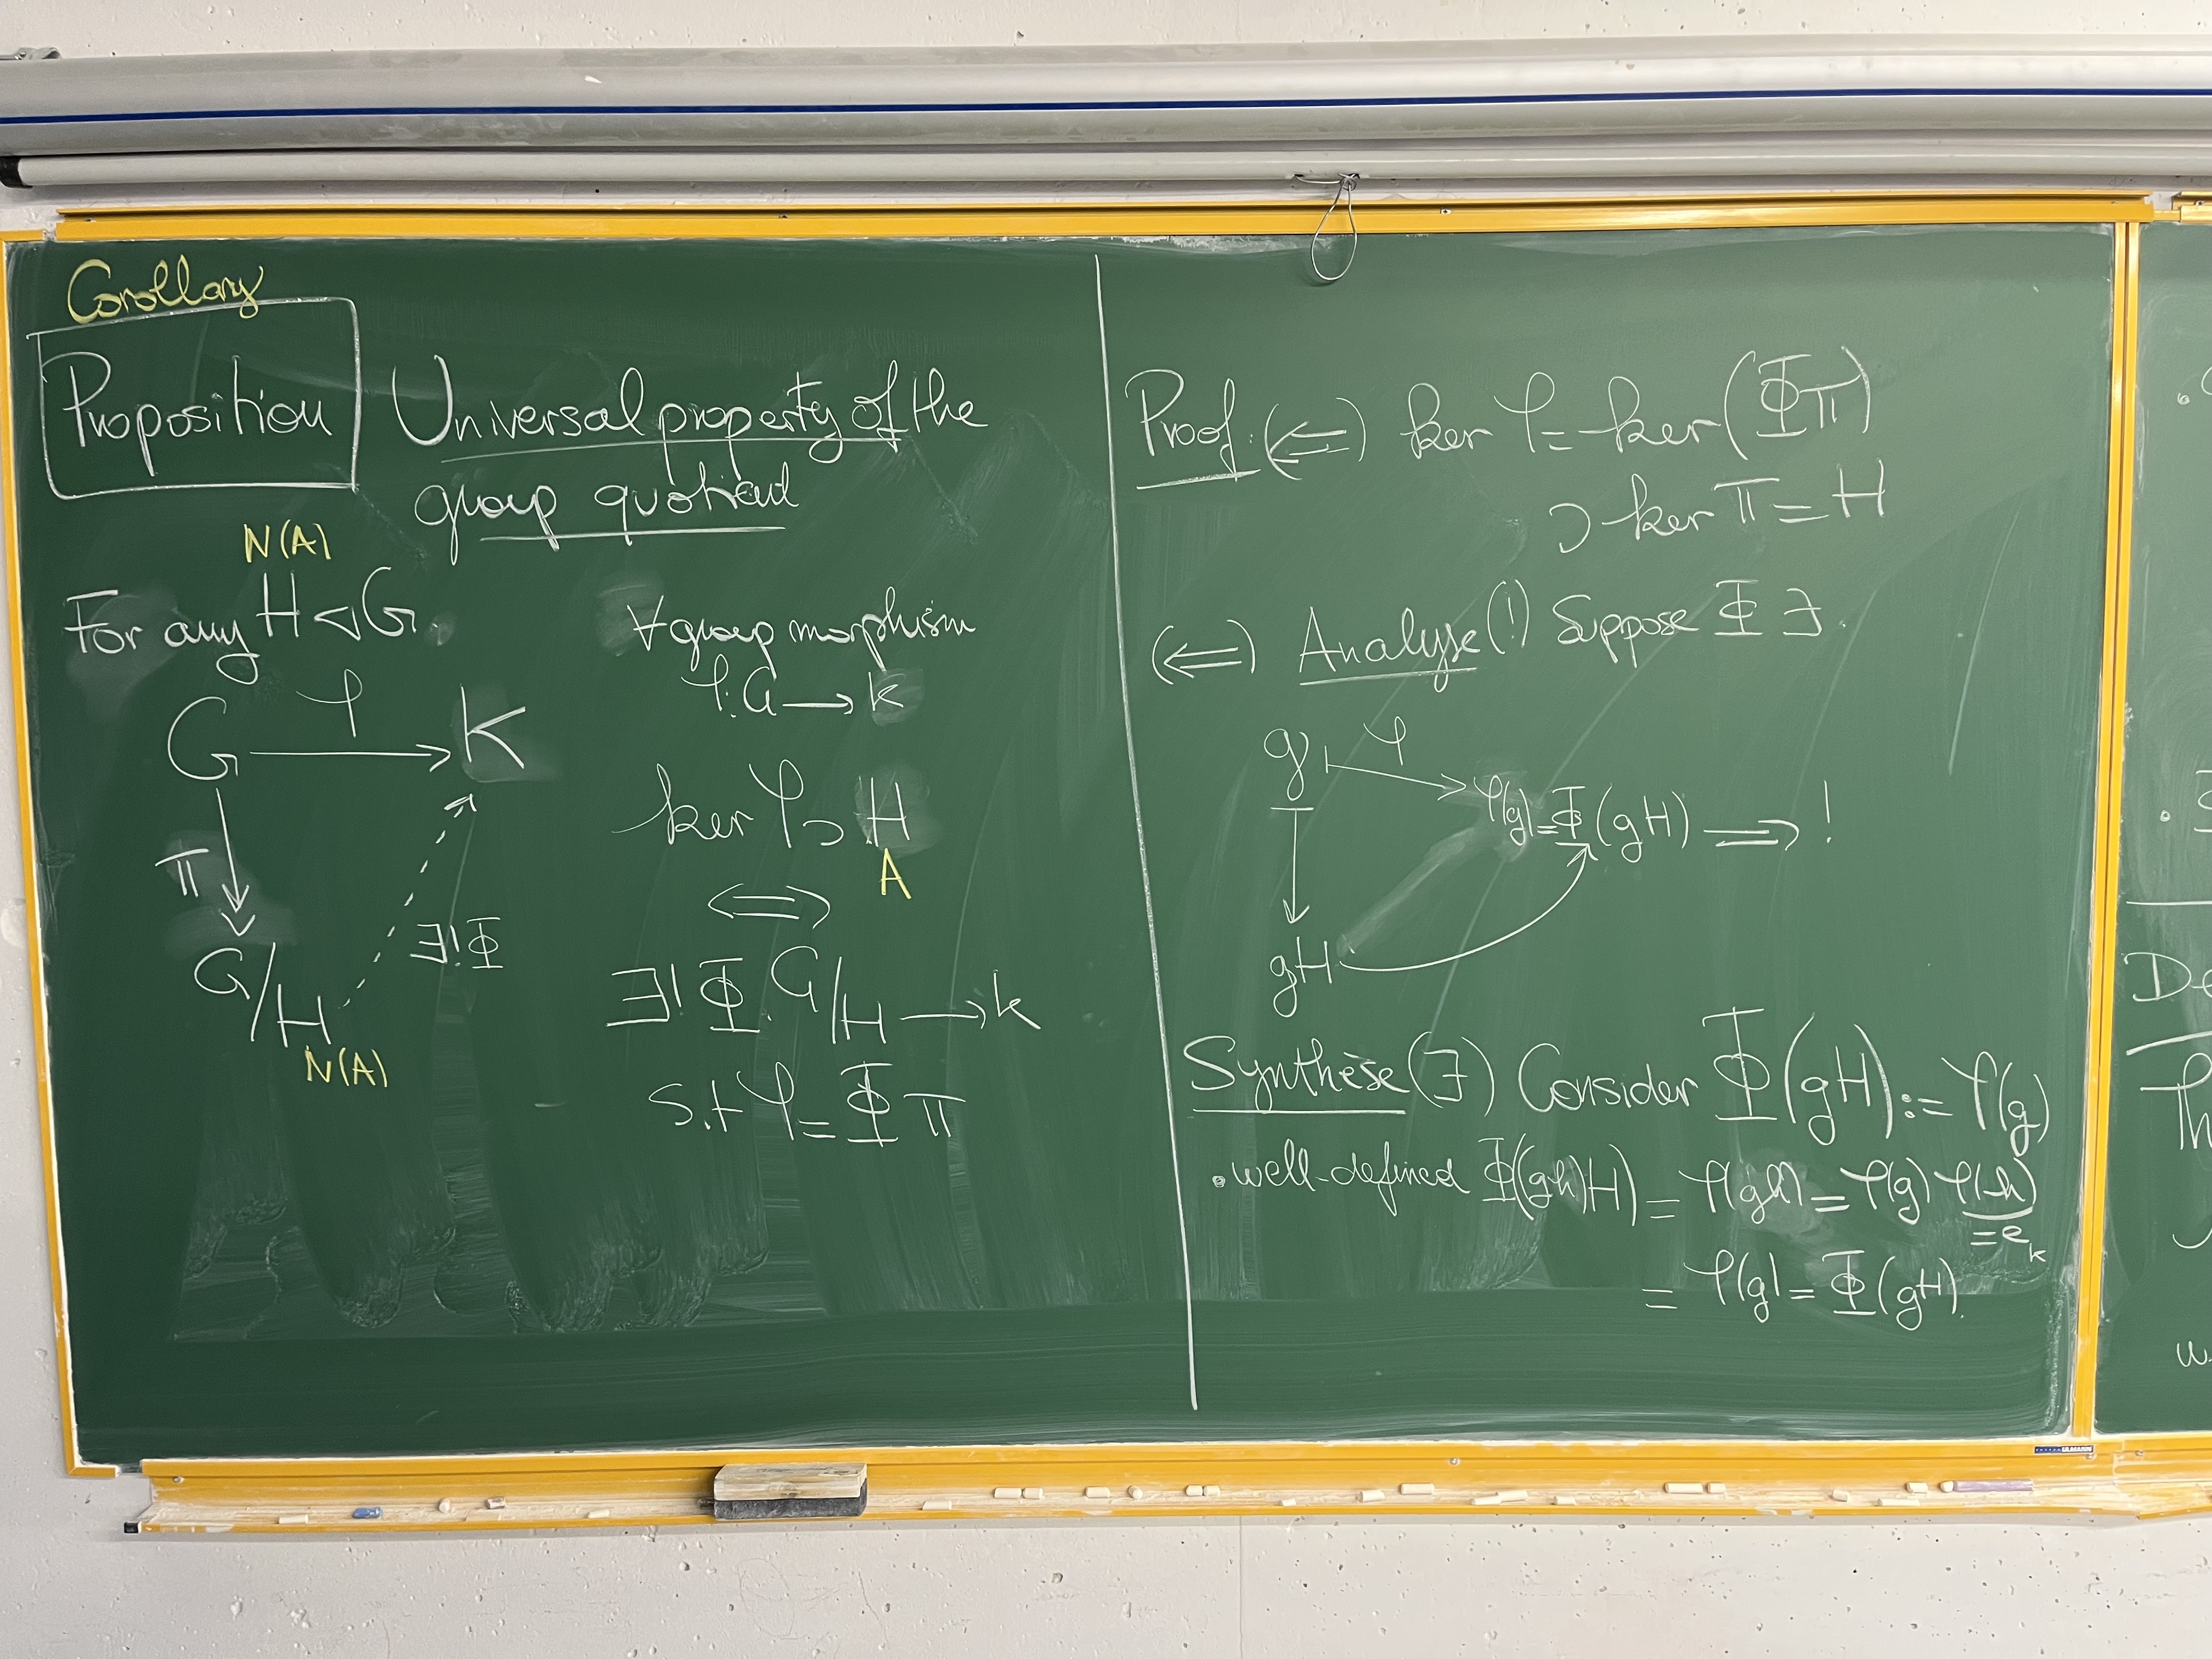 Corollary
Proposition
Universal property of the
group quotient
N(A)
For any H ◁ G.
∀ group morphism
φ: G ⟶ K
G φ K
ker φ ⊃ H
A
π
⟺
∃! Φ
G/H
N(A)
∃! Φ: G/H ⟶ K
s.t φ = Φ π
Proof: (⟸) ker φ = ker(Φπ)
⊃ ker π = H
(⟸) Analyse (!) Suppose Φ ∃.
g φ
φ(g) = Φ(gH) ⟹ !
gH
Synthèse (∃) Consider Φ(gH) := φ(g)
• well-defined Φ((gh)H) = φ(gh) = φ(g) φ(h)
= e_K
= φ(g) = Φ(gH).
De
Th
ULMANN